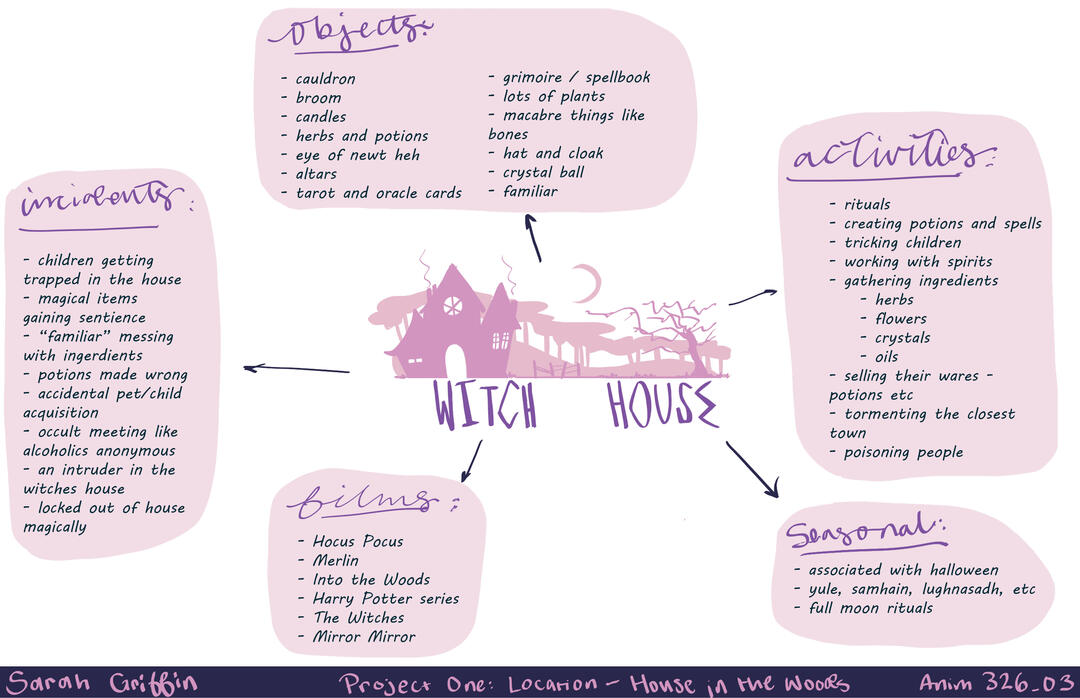 Objects:
- cauldron
- broom
- candles
- herbs and potions
- eye of newt heh
- altars
- tarot and oracle cards
- grimoire / spellbook
- lots of plants
- macabre things like
bones
- hat and cloak
- crystal ball
- familiar
incidents:
- children getting
trapped in the house
- magical items
gaining sentience
- “familiar” messing
with ingerdients
- potions made wrong
- accidental pet/child
acquisition
- occult meeting like
alcoholics anonymous
- an intruder in the
witches house
- locked out of house
magically
activities:
- rituals
- creating potions and spells
- tricking children
- working with spirits
- gathering ingredients
- herbs
- flowers
- crystals
- oils
- selling their wares -
potions etc
- tormenting the closest
town
- poisoning people
WITCH HOUSE
films:
- Hocus Pocus
- Merlin
- Into the Woods
- Harry Potter series
- The Witches
- Mirror Mirror
Seasonal:
- associated with halloween
- yule, samhain, lughnasadh, etc
- full moon rituals
Sarah Griffin Project One: Location - House in the Woods Anim 326_03